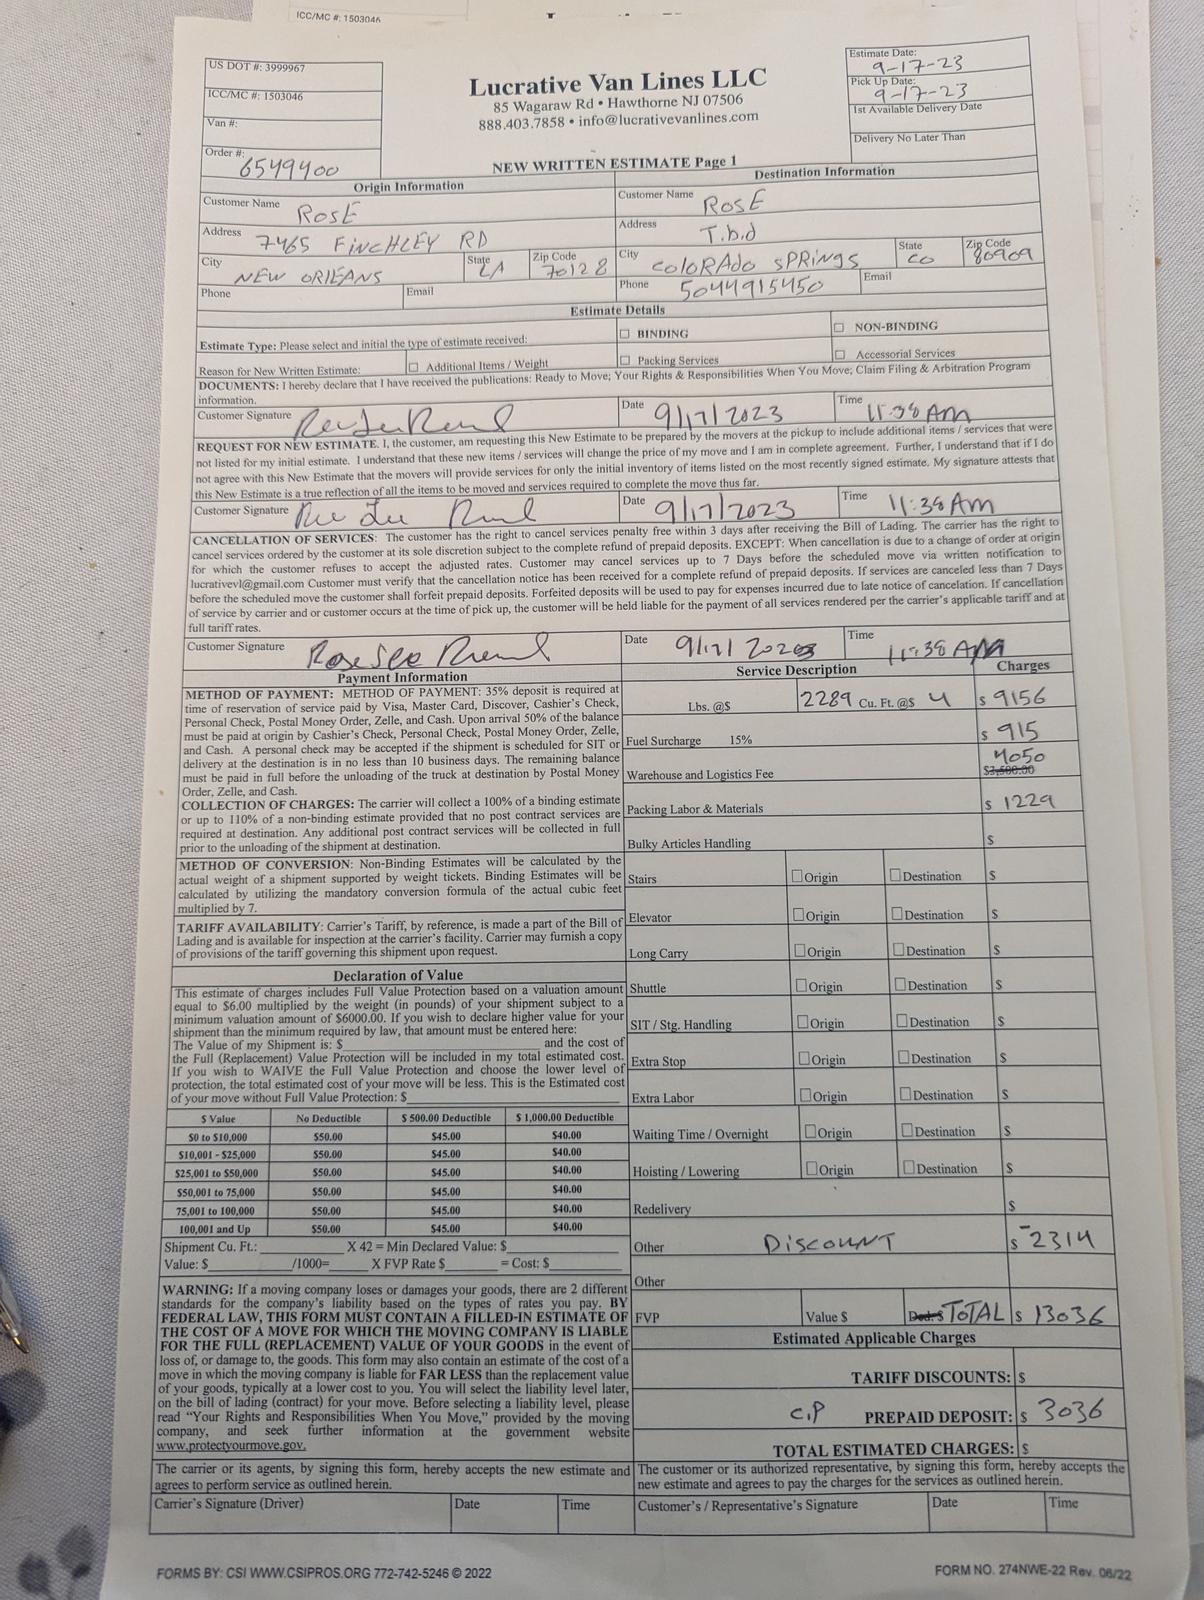 ICC/MC #: 1503046
US DOT #: 3999967
ICC/MC #: 1503046
Van #:
Order #: 6549400
Lucrative Van Lines LLC
85 Wagaraw Rd • Hawthorne NJ 07506
888.403.7858 • info@lucrativevanlines.com
NEW WRITTEN ESTIMATE Page 1
Estimate Date: 9-17-23
Pick Up Date: 9-17-23
1st Available Delivery Date
Delivery No Later Than
Origin Information
Customer Name ROSE
Address 7465 FINCHLEY RD
City NEW ORlEANS State LA Zip Code 70128
Phone Email
Destination Information
Customer Name ROSE
Address T.b.d
City COlORADO SPRINGS State CO Zip Code 80909
Phone 5044915450 Email
Estimate Details
Estimate Type: Please select and initial the type of estimate received: ☐ BINDING ☐ NON-BINDING
Reason for New Written Estimate: ☐ Additional Items / Weight ☐ Packing Services ☐ Accessorial Services
DOCUMENTS: I hereby declare that I have received the publications: Ready to Move; Your Rights & Responsibilities When You Move; Claim Filing & Arbitration Program
information.
Customer Signature Date 9/17/2023 Time 11:38 AM
REQUEST FOR NEW ESTIMATE. I, the customer, am requesting this New Estimate to be prepared by the movers at the pickup to include additional items / services that were
not listed for my initial estimate. I understand that these new items / services will change the price of my move and I am in complete agreement. Further, I understand that if I do
not agree with this New Estimate that the movers will provide services for only the initial inventory of items listed on the most recently signed estimate. My signature attests that
this New Estimate is a true reflection of all the items to be moved and services required to complete the move thus far.
Customer Signature Date 9/17/2023 Time 11:38 AM
CANCELLATION OF SERVICES: The customer has the right to cancel services penalty free within 3 days after receiving the Bill of Lading. The carrier has the right to
cancel services ordered by the customer at its sole discretion subject to the complete refund of prepaid deposits. EXCEPT: When cancellation is due to a change of order at origin
for which the customer refuses to accept the adjusted rates. Customer may cancel services up to 7 Days before the scheduled move via written notification to
lucrativevl@gmail.com Customer must verify that the cancellation notice has been received for a complete refund of prepaid deposits. If services are canceled less than 7 Days
before the scheduled move the customer shall forfeit prepaid deposits. Forfeited deposits will be used to pay for expenses incurred due to late notice of cancelation. If cancellation
of service by carrier and or customer occurs at the time of pick up, the customer will be held liable for the payment of all services rendered per the carrier's applicable tariff and at
full tariff rates.
Customer Signature Date 9/17/2023 Time 11:38 AM
Payment Information
METHOD OF PAYMENT: METHOD OF PAYMENT: 35% deposit is required at
time of reservation of service paid by Visa, Master Card, Discover, Cashier's Check,
Personal Check, Postal Money Order, Zelle, and Cash. Upon arrival 50% of the balance
must be paid at origin by Cashier's Check, Personal Check, Postal Money Order, Zelle,
and Cash. A personal check may be accepted if the shipment is scheduled for SIT or
delivery at the destination is in no less than 10 business days. The remaining balance
must be paid in full before the unloading of the truck at destination by Postal Money
Order, Zelle, and Cash.
COLLECTION OF CHARGES: The carrier will collect a 100% of a binding estimate
or up to 110% of a non-binding estimate provided that no post contract services are
required at destination. Any additional post contract services will be collected in full
prior to the unloading of the shipment at destination.
METHOD OF CONVERSION: Non-Binding Estimates will be calculated by the
actual weight of a shipment supported by weight tickets. Binding Estimates will be
calculated by utilizing the mandatory conversion formula of the actual cubic feet
multiplied by 7.
TARIFF AVAILABILITY: Carrier's Tariff, by reference, is made a part of the Bill of
Lading and is available for inspection at the carrier's facility. Carrier may furnish a copy
of provisions of the tariff governing this shipment upon request.
Declaration of Value
This estimate of charges includes Full Value Protection based on a valuation amount
equal to $6.00 multiplied by the weight (in pounds) of your shipment subject to a
minimum valuation amount of $6000.00. If you wish to declare higher value for your
shipment than the minimum required by law, that amount must be entered here:
The Value of my Shipment is: $ and the cost of
the Full (Replacement) Value Protection will be included in my total estimated cost.
If you wish to WAIVE the Full Value Protection and choose the lower level of
protection, the total estimated cost of your move will be less. This is the Estimated cost
of your move without Full Value Protection: $
$ Value No Deductible $ 500.00 Deductible $ 1,000.00 Deductible
$0 to $10,000 $50.00 $45.00 $40.00
$10,001 - $25,000 $50.00 $45.00 $40.00
$25,001 to $50,000 $50.00 $45.00 $40.00
$50,001 to 75,000 $50.00 $45.00 $40.00
75,001 to 100,000 $50.00 $45.00 $40.00
100,001 and Up $50.00 $45.00 $40.00
Shipment Cu. Ft.: X 42 = Min Declared Value: $
Value: $ /1000= X FVP Rate $ = Cost: $
WARNING: If a moving company loses or damages your goods, there are 2 different
standards for the company's liability based on the types of rates you pay. BY
FEDERAL LAW, THIS FORM MUST CONTAIN A FILLED-IN ESTIMATE OF
THE COST OF A MOVE FOR WHICH THE MOVING COMPANY IS LIABLE
FOR THE FULL (REPLACEMENT) VALUE OF YOUR GOODS in the event of
loss of, or damage to, the goods. This form may also contain an estimate of the cost of a
move in which the moving company is liable for FAR LESS than the replacement value
of your goods, typically at a lower cost to you. You will select the liability level later,
on the bill of lading (contract) for your move. Before selecting a liability level, please
read "Your Rights and Responsibilities When You Move," provided by the moving
company, and seek further information at the government website
www.protectyourmove.gov.
Service Description Charges
Lbs. @$ 2289 Cu. Ft. @$ 4 $ 9156
Fuel Surcharge 15% $ 915
Warehouse and Logistics Fee 4050 $3,500.00
Packing Labor & Materials $ 1229
Bulky Articles Handling $
Stairs ☐ Origin ☐ Destination $
Elevator ☐ Origin ☐ Destination $
Long Carry ☐ Origin ☐ Destination $
Shuttle ☐ Origin ☐ Destination $
SIT / Stg. Handling ☐ Origin ☐ Destination $
Extra Stop ☐ Origin ☐ Destination $
Extra Labor ☐ Origin ☐ Destination $
Waiting Time / Overnight ☐ Origin ☐ Destination $
Hoisting / Lowering ☐ Origin ☐ Destination $
Redelivery $
Other DISCOUNT $ -2314
Other
FVP Value $ Ded. $ TOTAL $ 13036
Estimated Applicable Charges
TARIFF DISCOUNTS: $
C.P PREPAID DEPOSIT: $ 3036
TOTAL ESTIMATED CHARGES: $
The carrier or its agents, by signing this form, hereby accepts the new estimate and
agrees to perform service as outlined herein.
The customer or its authorized representative, by signing this form, hereby accepts the
new estimate and agrees to pay the charges for the services as outlined herein.
Carrier's Signature (Driver) Date Time Customer's / Representative's Signature Date Time
FORMS BY: CSI WWW.CSIPROS.ORG 772-742-5246 © 2022
FORM NO. 274NWE-22 Rev. 06/22